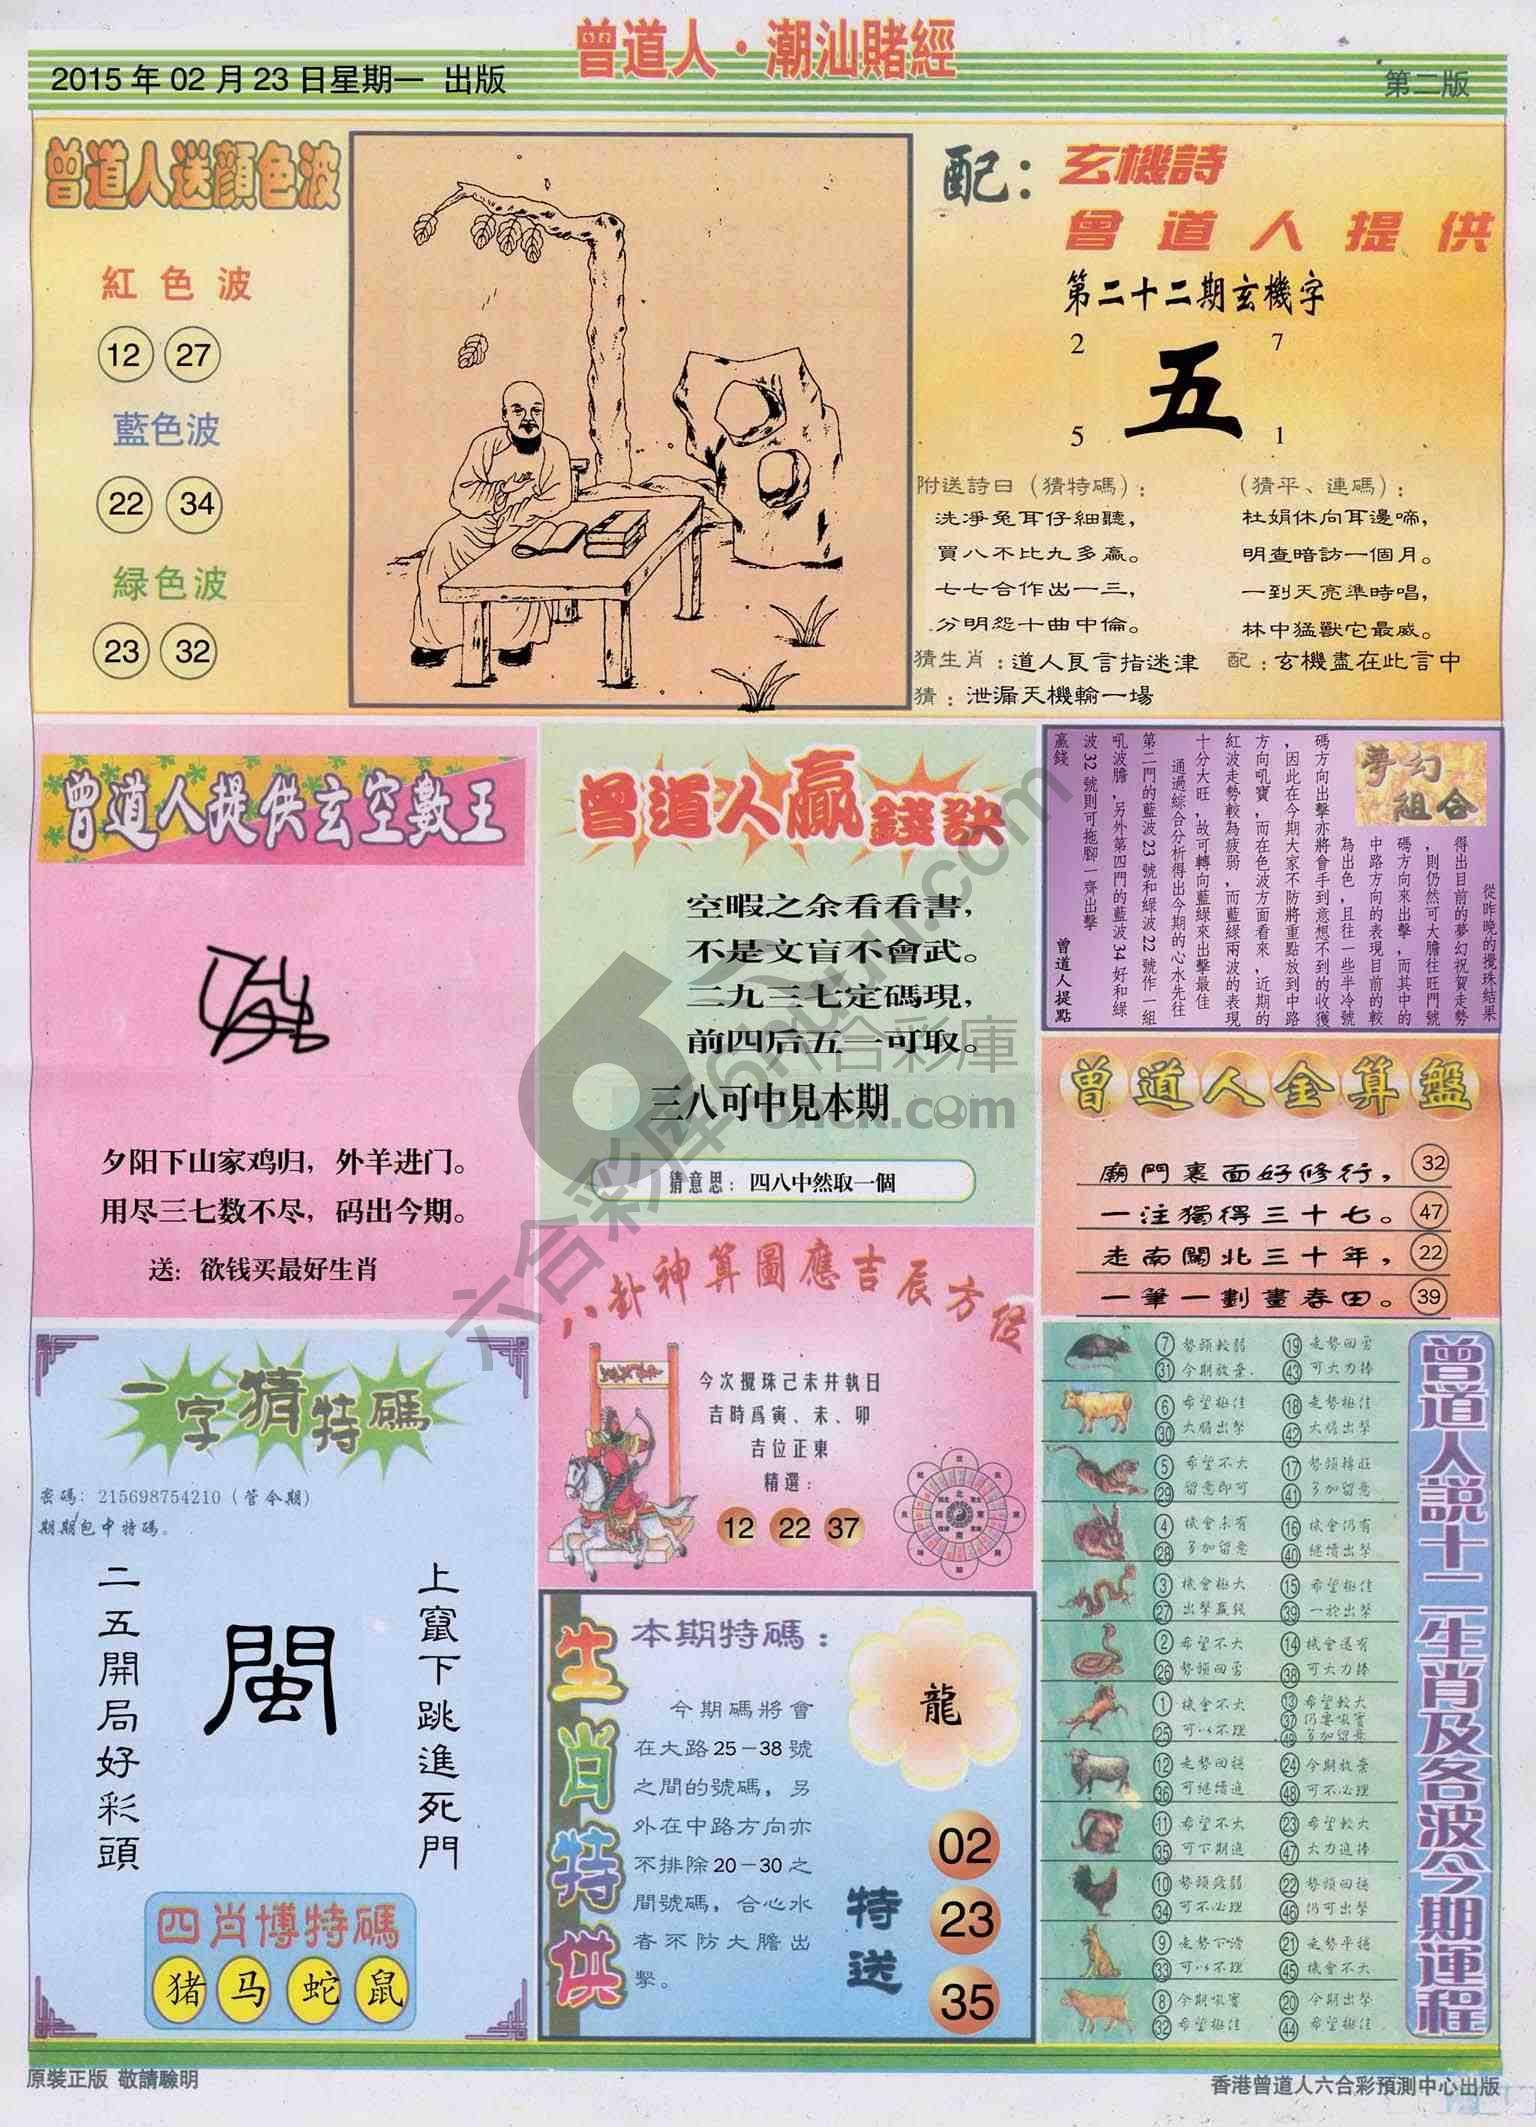 曾道人·潮汕賭經
2015年02月23日星期一 出版
第二版
曾道人送顔色波
紅色波
12 27
藍色波
22 34
緑色波
23 32
配：玄機詩
曾道人提供
第二十二期玄機字
2 7
五
5 1
附送詩曰（猜特碼）：
洗淨兔耳仔細聽，
買八不比九多贏。
七七合作出一三，
分明怨十曲中倫。
（猜平、連碼）：
杜娟休向耳邊啼，
明查暗訪一個月。
一到天亮準時唱，
林中猛獸它最威。
猜生肖：道人良言指迷津
配：玄機盡在此言中
猜：泄漏天機輸一場
曾道人提供玄空數王
夕阳下山家鸡归，外羊进门。
用尽三七数不尽，码出今期。
送：欲钱买最好生肖
曾道人贏錢訣
空暇之余看看書，
不是文盲不會武。
二九三七定碼現，
前四后五一可取。
三八可中見本期
猜意思：四八中然取一個
夢幻組合
從昨晚的攪珠結果
得出目前的夢幻祝賀走勢
，則仍然可大膽往旺門號
碼方向來出擊，而其中的
中路方向的表現目前的較
為出色，且往一些半冷號
碼方向出擊亦將會手到意想不到的收獲
，因此在今期大家不防將重點放到中路
方向吼寶，而在色波方面看來，近期的
紅波走勢較為疲弱，而藍綠兩波的表現
十分大旺，故可轉向藍綠來出擊最佳
通過綜合分析得出今期的心水先往
第二門的藍波23號和綠波22號作一組
吼波膽，另外第四門的藍波34好和綠
波32號則可拖腳一齊出擊
贏錢
曾道人提點
曾道人金算盤
廟門裏面好修行，32
一注獨得三十七。47
走南闖北三十年，22
一筆一劃畫春田。39
八卦神算圖應吉辰方位
今次攪珠己未井執日
吉時爲寅、未、卯
吉位正東
精選：
12 22 37
一字猜特碼
密碼：215698754210（管今期）
期期包中特碼。
上竄下跳進死門
閩
二五開局好彩頭
四肖博特碼
猪 马 蛇 鼠
生肖特供
本期特碼：
今期碼將會
在大路25－38號
之間的號碼，另
外在中路方向亦
不排除20－30之
間號碼，合心水
者不防大膽出
擊。
龍
特送
02
23
35
曾道人説十二生肖及各波今期運程
7 勢頭較弱 19 走勢回勇
31 今期放棄 43 可大力捧
6 希望極佳 18 走勢極佳
30 大膽出擊 42 大膽出擊
5 希望不大 17 勢頭棒旺
29 留意即可 41 多加留意
4 機會未有 16 機會仍有
28 多加留意 40 繼續出擊
3 機會極大 15 希望極佳
27 出擊贏錢 39 一於出擊
2 希望不大 14 機會還有
26 勢頭回勇 38 可大力捧
1 機會不大 13 希望較大
25 可以不理 37 仍要吸寶
49 多加留意
12 走勢回穩 24 今期放棄
36 可繼續進 48 可不必理
11 希望不大 23 希望較大
35 可下期進 47 大力進捧
10 勢頭疲弱 22 勢頭回穩
34 可不必理 46 仍可出擊
9 走勢下滑 21 走勢平穩
33 可以不理 45 機會不大
8 今期吸寶 20 今期出擊
32 希望極佳 44 希望極佳
原裝正版 敬請聯明
香港曾道人六合彩預測中心出版
六合彩库6hwu.com
六合彩庫
6hck.com